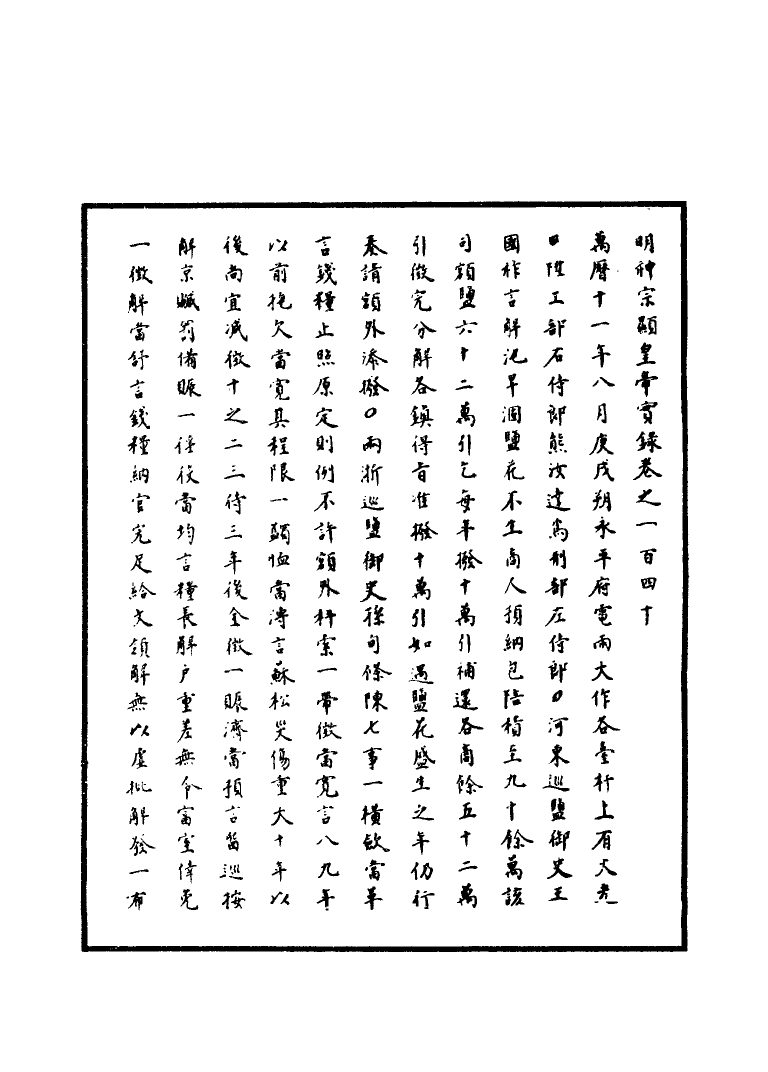 明神宗顯皇帝實錄卷之一百四十
萬曆十一年八月庚戌朔永平府電雨大作各臺杆上有火光
○陞工部右侍郎熊汝達為刑部左侍郎○河東巡鹽御史王
國柞言解池旱涸鹽花不生商人預納包陪積至九十餘萬該
司額鹽六十二萬引乞每年撥十萬引補還各商餘五十二萬
引徵完分解各鎮得旨准撥十萬引如遇鹽花盛生之年仍行
奏請額外添撥○兩浙巡鹽御史孫旬條陳七事一橫斂當革
言錢糧止照原定則例不許額外科索一帶徵當寬言八九年
以前拖欠當寬其程限一蠲恤當溥言蘇松災傷重大十年以
後尚宜減徵十之二三待三年後全徵一賑濟當預言留巡按
解京贓罰備賑一徭役當均言糧長解戶重差無令富室倖免
一徵解當舒言錢糧納官完足給文領解無以虛批解發一布